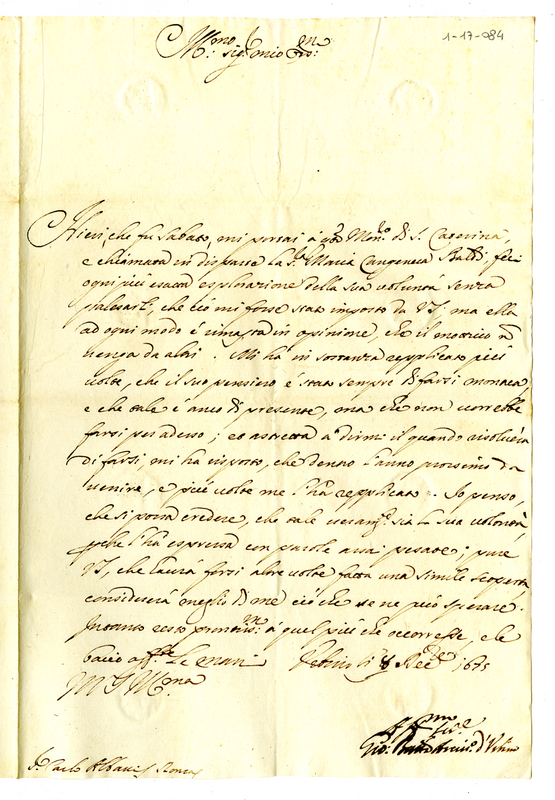 1-17-084
Hieri, che fu Sabato, mi portai à Mon.ro di S. Caterina,
e chiamata in disparte la S.ra Maria Bald: feci
ogni più esatta esplorazione della sua volontà senza
palesarli, che ciò mi fosse stato imposto da VS, ma ella
ad ogni modo è rimasta in opinione, che il motivo
venga da altri. Mi hà in sostanza repplicato più
volte, che il suo pensiero è stato sempre di farsi monaca,
e che tale è anco di presente, ma che non vorrebbe
farsi per adesso; et astretta a dirmi il quando risolverà
di farsi, mi ha risposto, che dentro l'anno prossimo da
venire, e più volte me l'ha repplicato. Io penso,
che si possa credere, che tale sia la sua volontà,
che l'ha espressa con parole assai pesate; pure
VS, che haurà forsi altre volte fatta una simile scoperta,
considererà meglio di me ciò che se ne può sperare.
Intanto resto à quel più che occorresse, e le
bacio aff.te le mani 8 1675
S.r Carlo Albani Roma